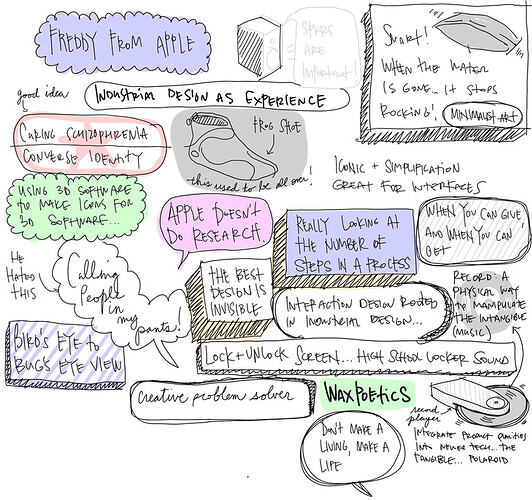 FREDDY FROM APPLE
STEPS
ARE
IMPORTANT!
SMART!
WHEN THE WATER
IS GONE.. IT STOPS
ROCKING!
MINIMALIST ART
good idea
INDUSTRIAL DESIGN AS EXPERIENCE
CURING SCHIZOPHRENIA
CONVERSE IDENTITY
FROG SHOE
this used to be all over!
ICONIC + SIMPLIFICATION
GREAT FOR INTERFACES
USING 3D SOFTWARE
TO MAKE ICONS FOR
3D SOFTWARE...
APPLE DOESN'T
DO RESEARCH.
REALLY LOOKING AT
THE NUMBER OF
STEPS IN A PROCESS
WHEN YOU CAN GIVE,
AND WHEN YOU CAN
GET
HE
HATED
THIS
Calling
People
in
my
pants!
THE BEST
DESIGN IS
INVISIBLE
INTERACTION DESIGN ROOTED
IN INDUSTRIAL DESIGN...
RECORD: A
PHYSICAL WAY
TO MANIPULATE
THE INTANGIBLE
(MUSIC)
BIRD'S EYE TO
BUGS EYE VIEW
LOCK + UNLOCK SCREEN... HIGH SCHOOL LOCKER SOUND
Creative problem solver
WAXPOETICS
record
player
DON'T MAKE A
LIVING, MAKE A
LIFE
INTEGRATE PRODUCT QUALITIES
INTO NEWER TECH... THE
TANGIBLE... POLAROID